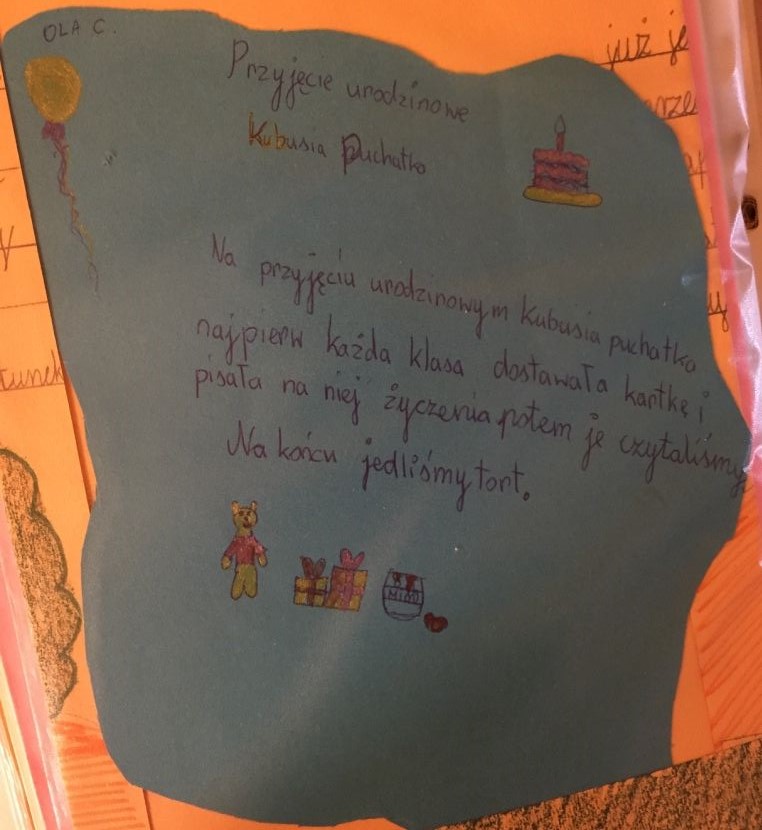 OLA C.
Przyjęcie urodzinowe
Kubusia Puchatka
Na przyjęciu urodzinowym Kubusia puchatka
najpierw każda klasa dostawała kartkę i
pisała na niej życzenia potem je czytaliśmy,
Na końcu jedliśmy tort.
MIÓD
już je